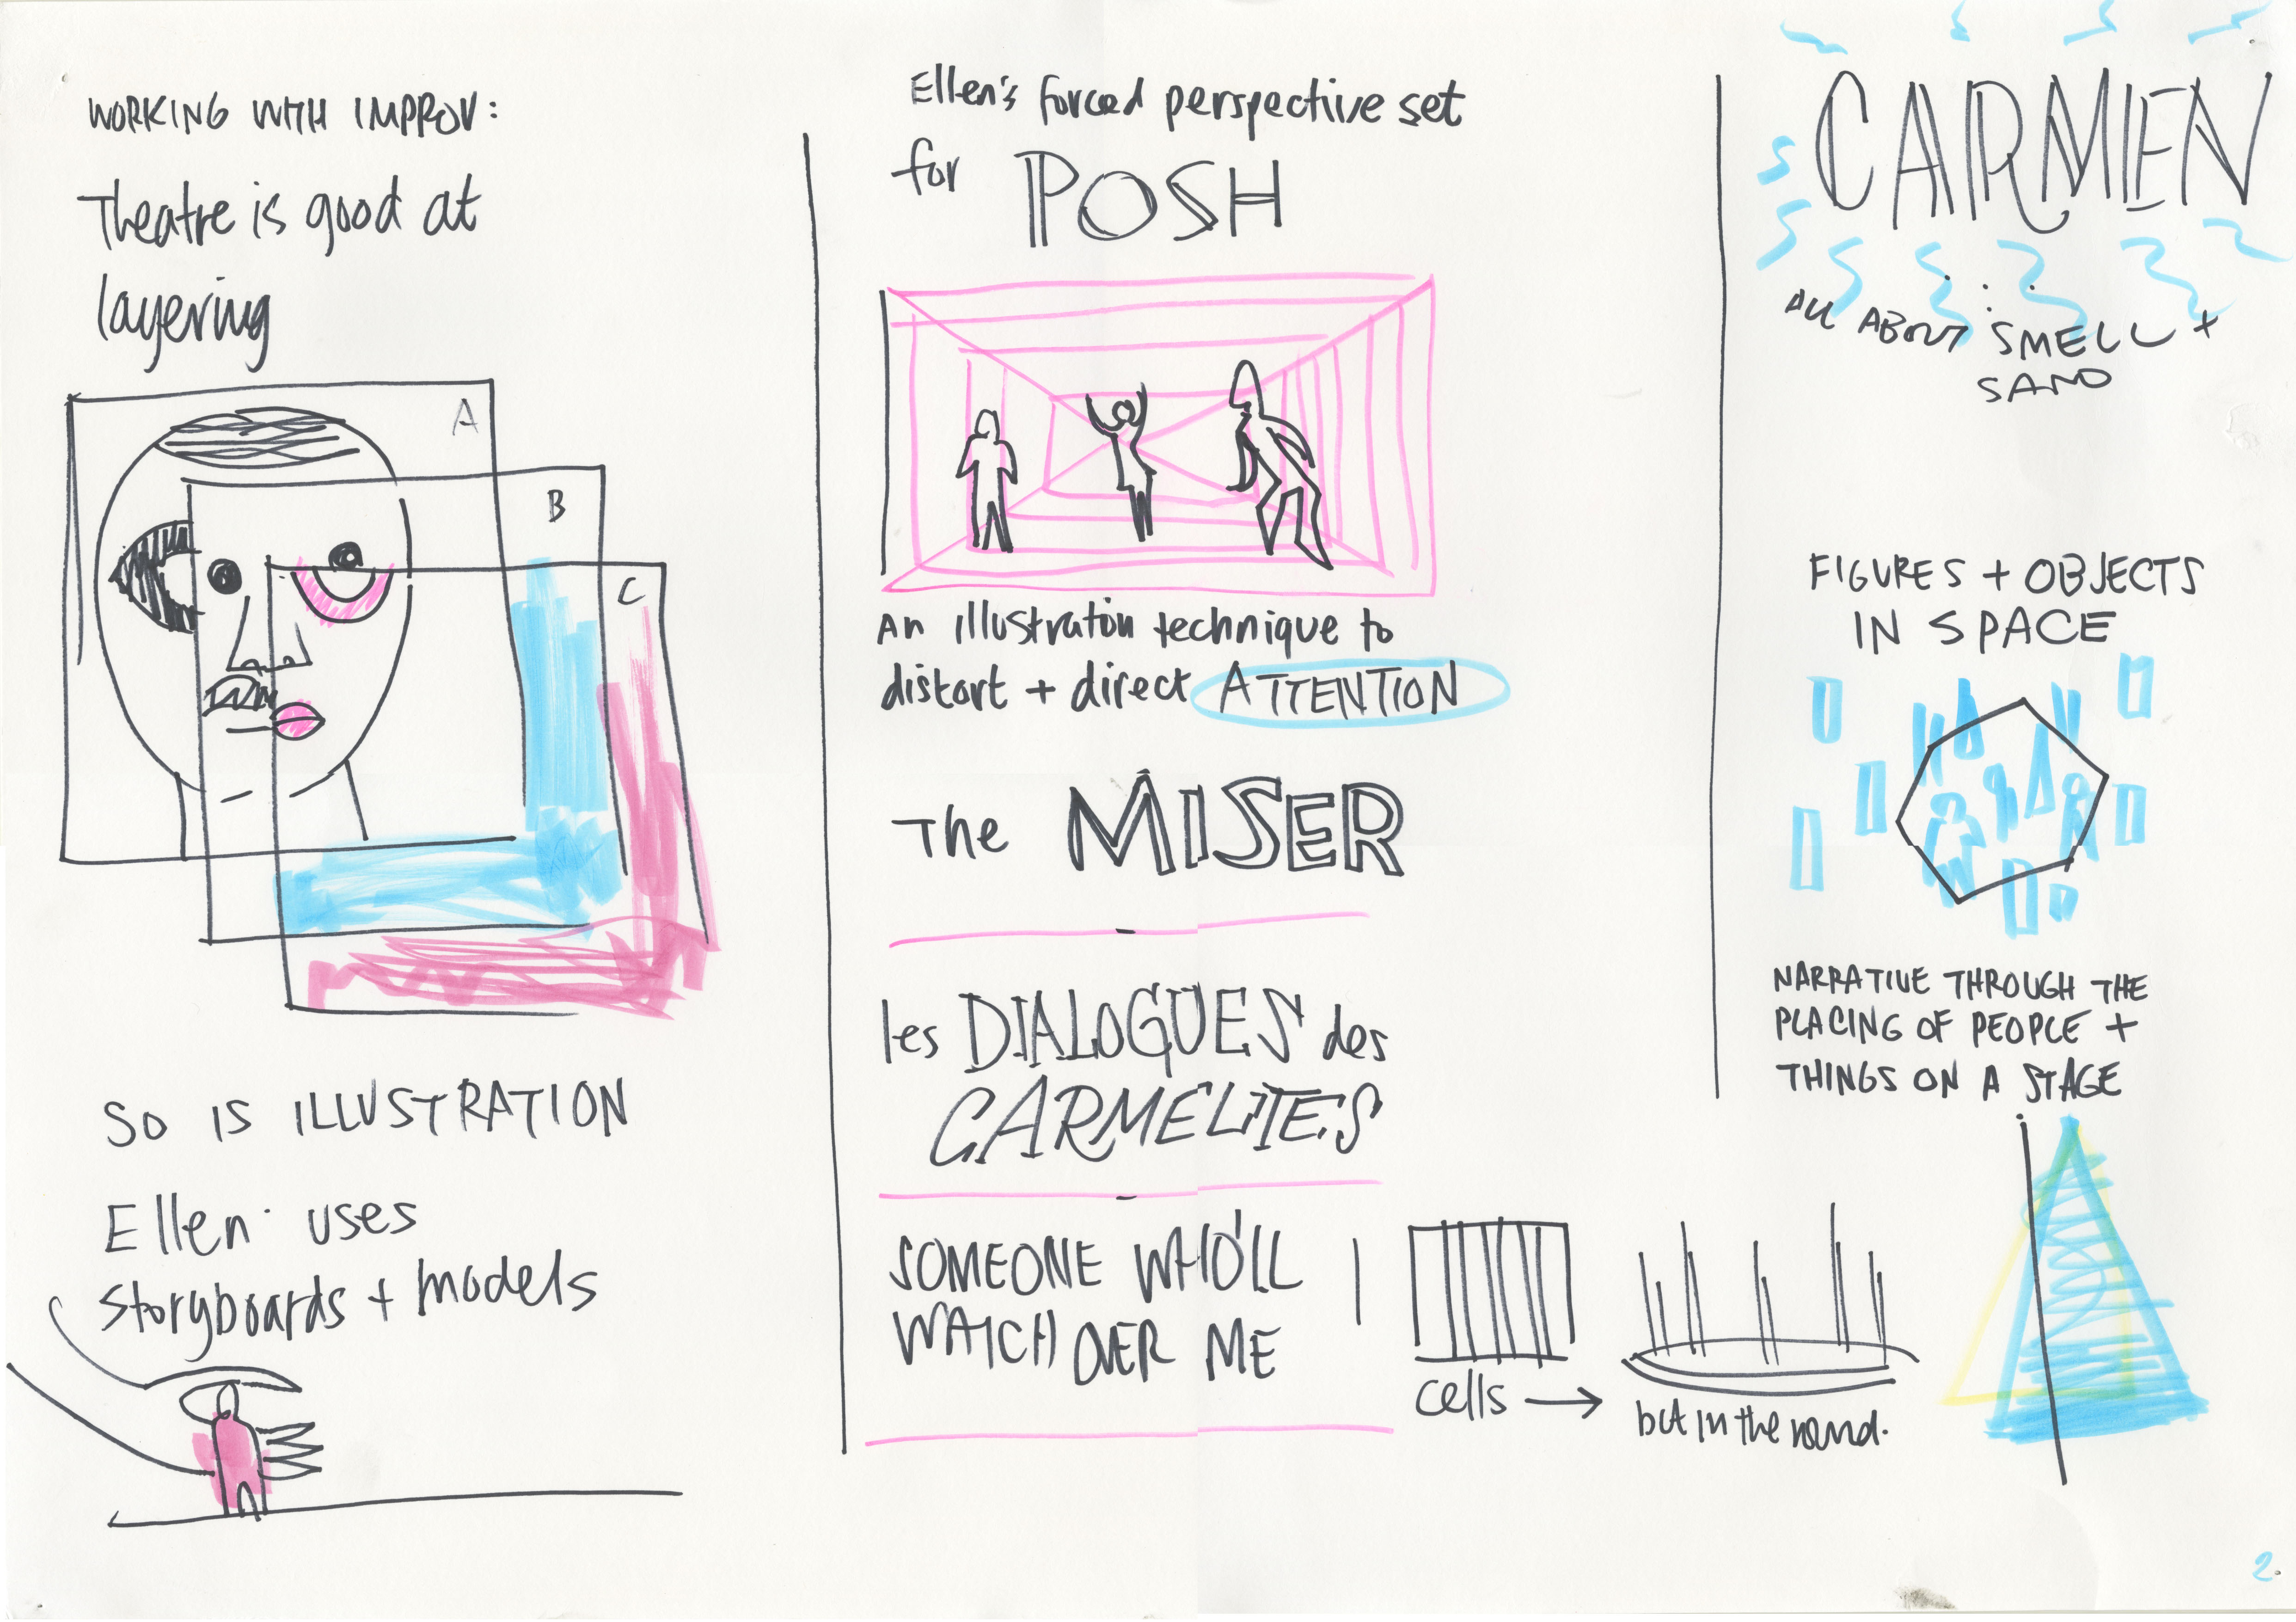 WORKING WITH IMPROV:
Theatre is good at
layering
A
B
C
SO IS ILLUSTRATION
Ellen uses
storyboards + models
Ellen's forced perspective set
for POSH
An illustration technique to
distort + direct ATTENTION
The MISER
les DIALOGUES des
CARMELITES
SOMEONE WHO'LL
WATCH OVER ME
cells →
but in the round.
CARMEN
ALL ABOUT SMELL +
SAND
FIGURES + OBJECTS
IN SPACE
NARRATIVE THROUGH THE
PLACING OF PEOPLE +
THINGS ON A STAGE
2.